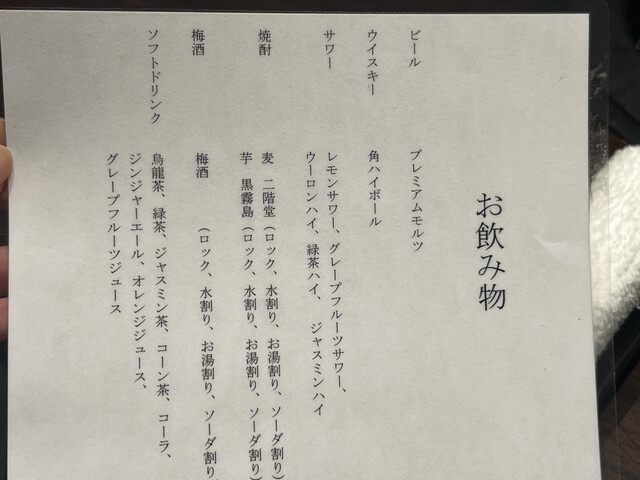 お飲み物
ビール　プレミアムモルツ
ウイスキー　角ハイボール
サワー　レモンサワー、グレープフルーツサワー、
ウーロンハイ、緑茶ハイ、ジャスミンハイ
焼酎　麦　二階堂（ロック、水割り、お湯割り、ソーダ割り）
芋　黒霧島（ロック、水割り、お湯割り、ソーダ割り）
梅酒　梅酒　（ロック、水割り、お湯割り、ソーダ割り
ソフトドリンク　烏龍茶、緑茶、ジャスミン茶、コーン茶、コーラ、
ジンジャーエール、オレンジジュース、
グレープフルーツジュース